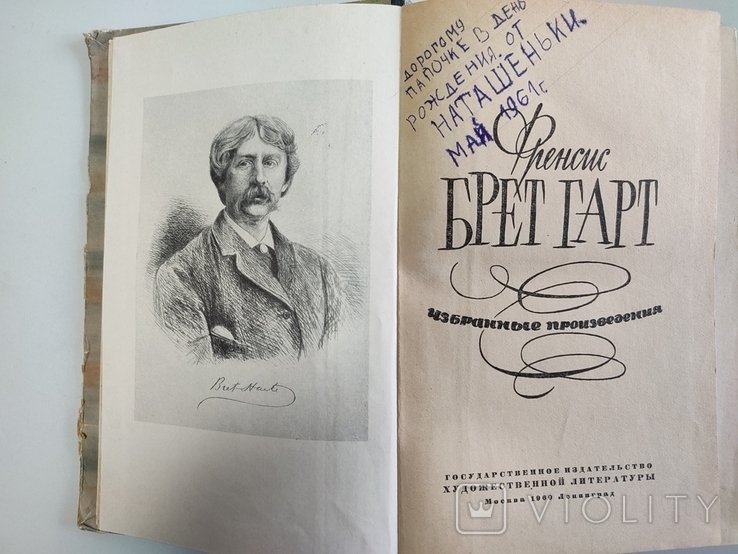 Bret Harte
ДОРОГОМУ
ПАПОЧКЕ В ДЕНЬ
РОЖДЕНИЯ ОТ
НАТАШЕНЬКИ.
МАЙ 1961 г.
Френсис
БРЕТ ГАРТ
избранные произведения
ГОСУДАРСТВЕННОЕ ИЗДАТЕЛЬСТВО
ХУДОЖЕСТВЕННОЙ ЛИТЕРАТУРЫ
Москва 1960 Ленинград
VIOLITY